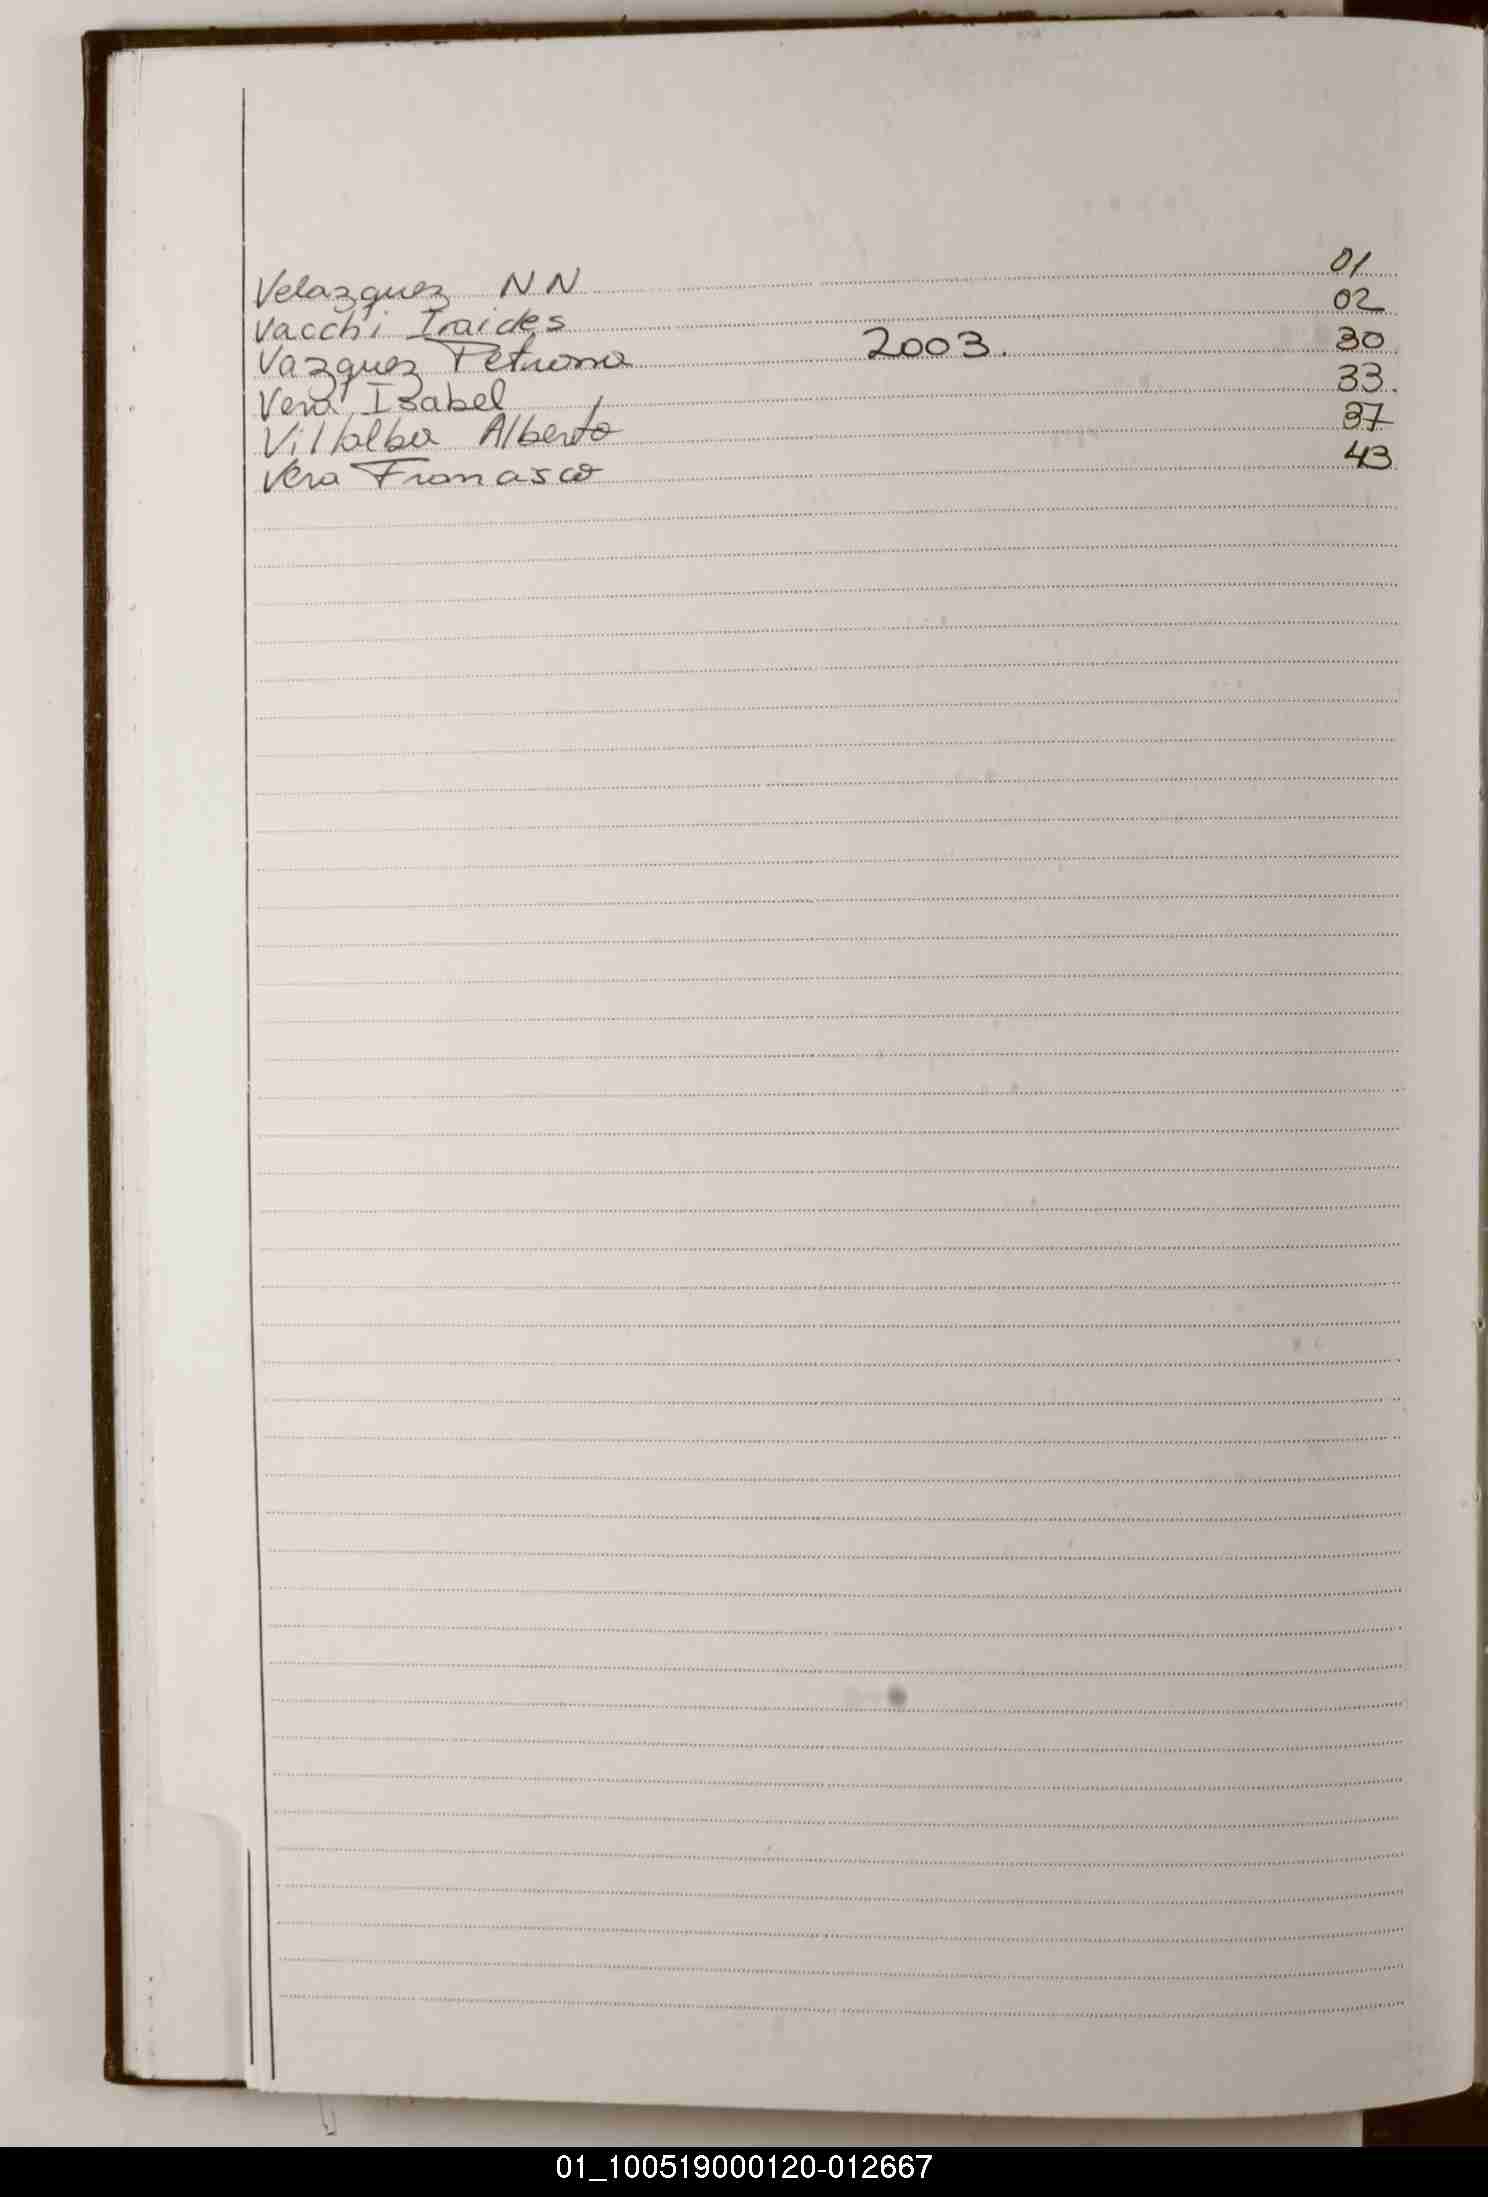 Velazquez N N 01
Vacchi Iraides 02
Vazquez Petrona 2003. 30
Vera Isabel 33.
Villalba Alberto 37
Vera Francisco 43
01_100519000120-012667